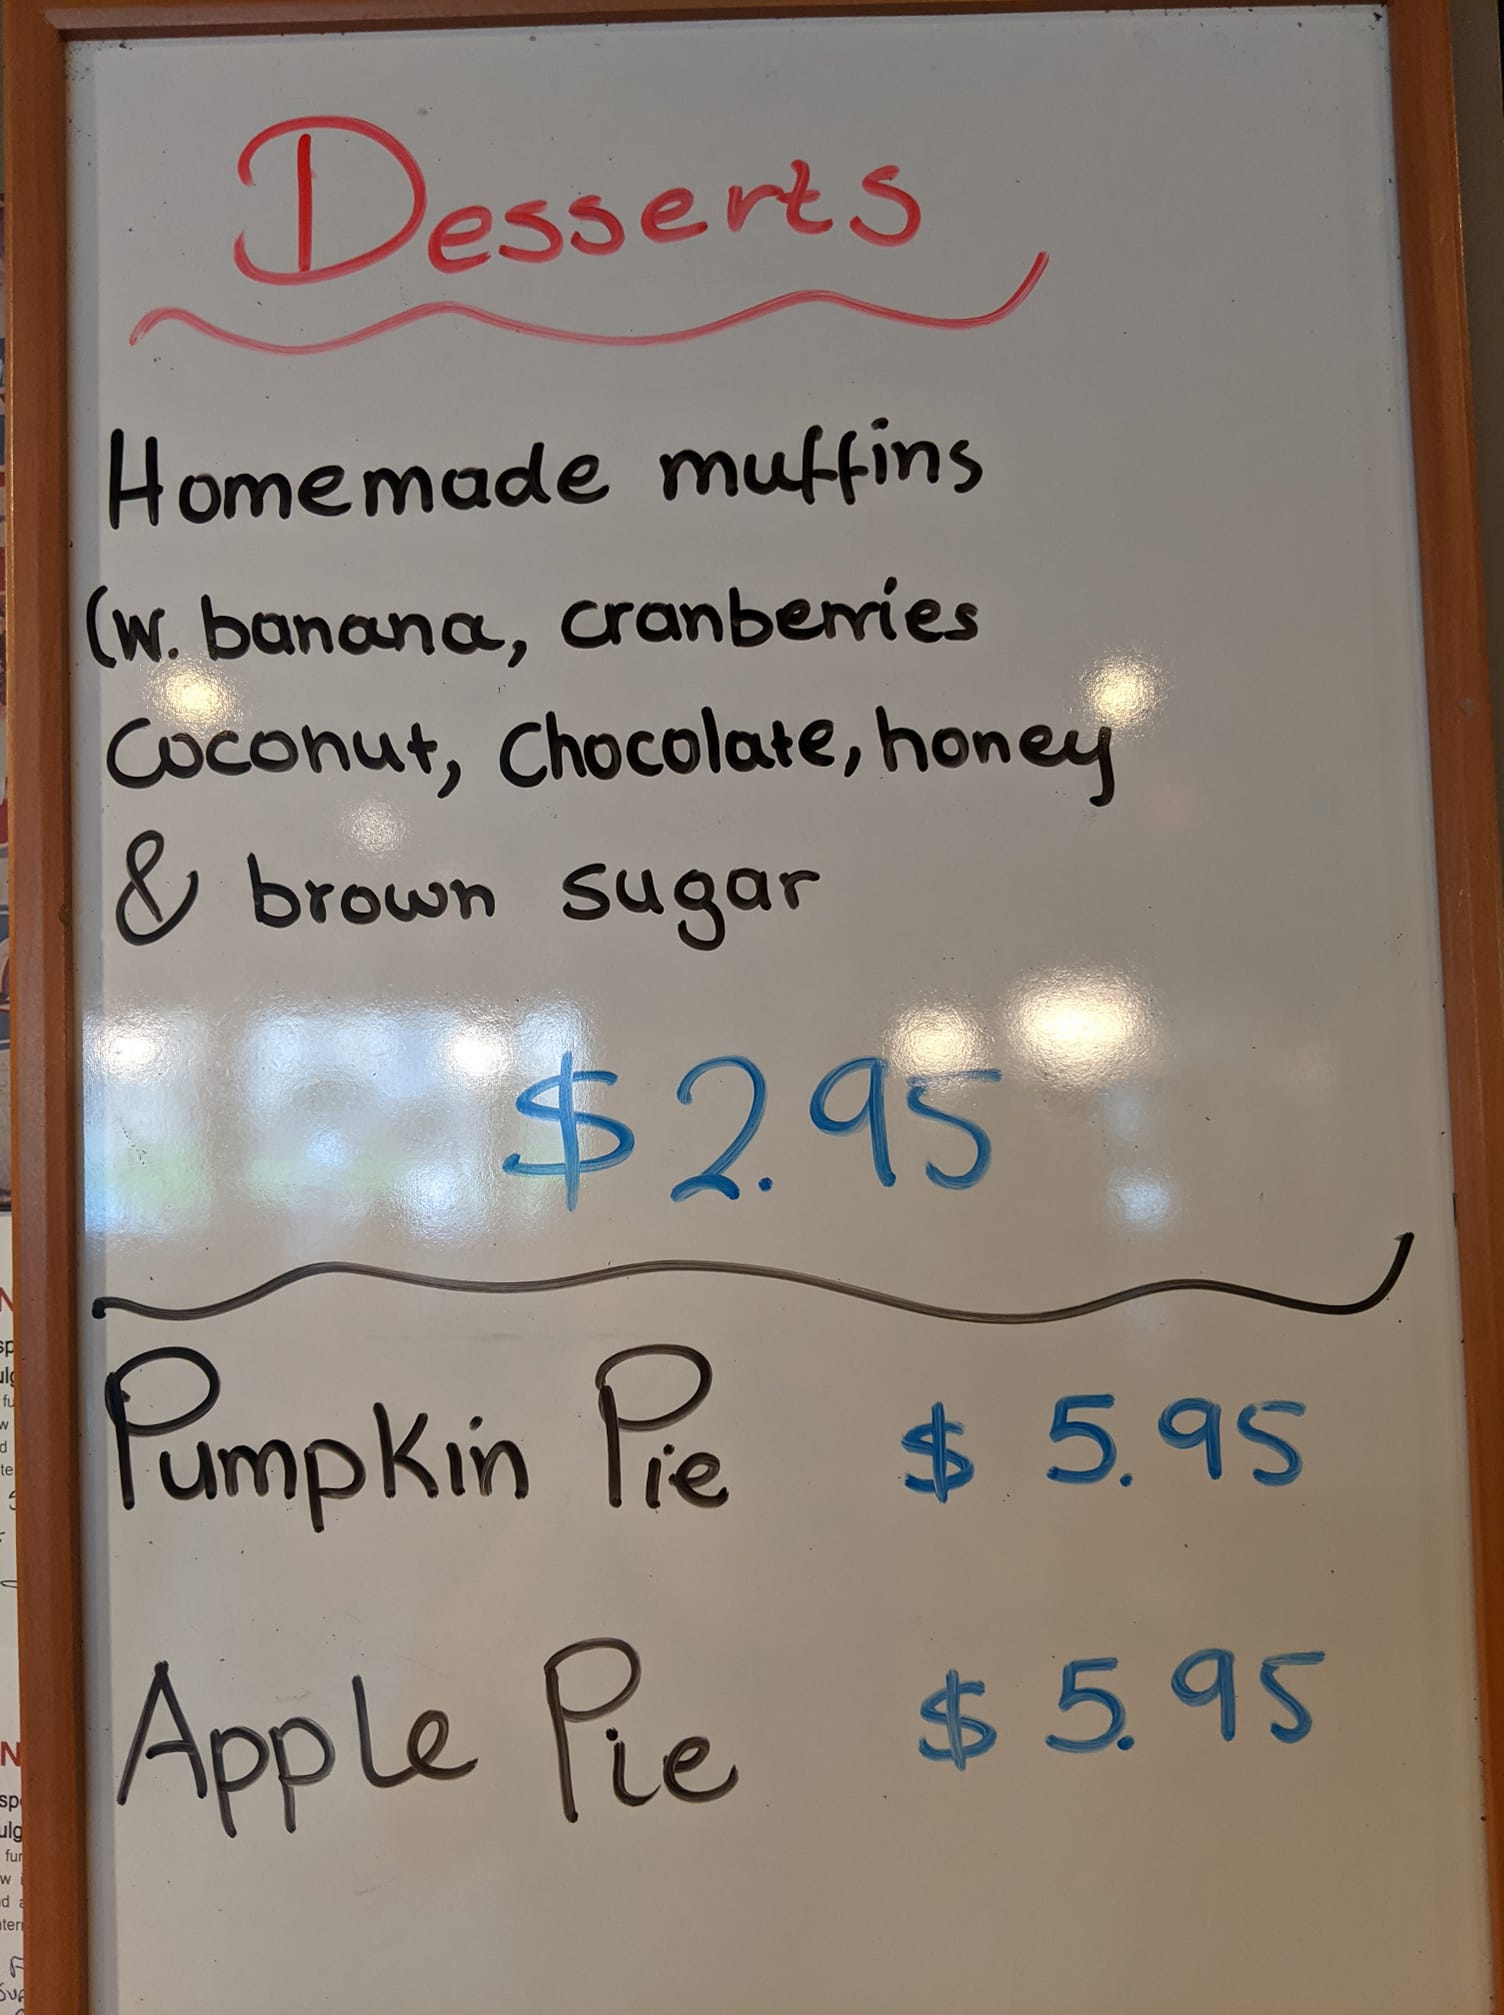 Desserts
Homemade muffins
(w. banana, cranberries
Coconut, Chocolate, honey
& brown sugar
$2.95
Pumpkin Pie $ 5.95
Apple Pie $ 5.95